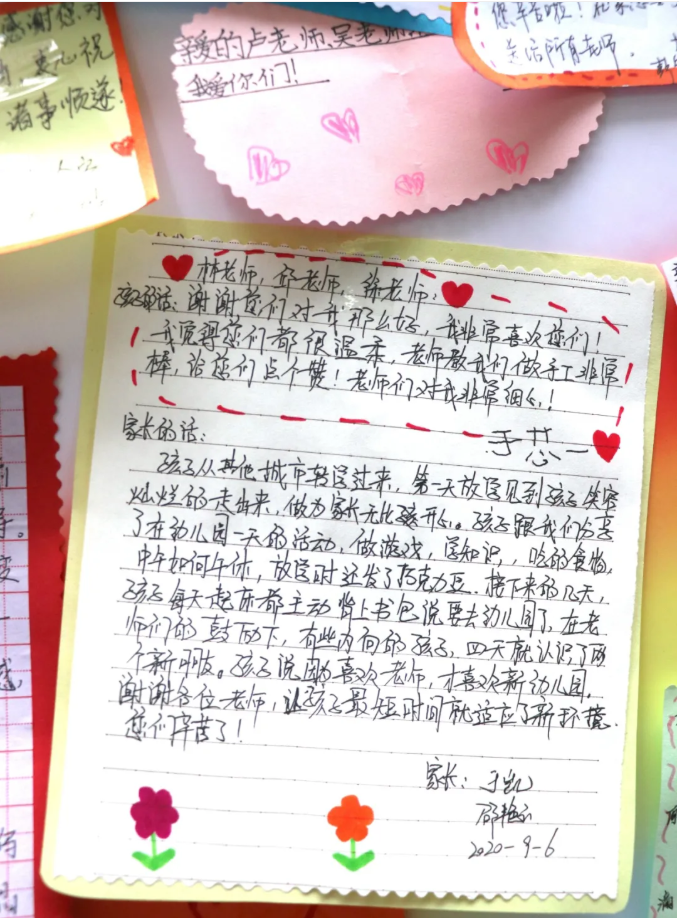 感谢您对
衷心祝
诸事顺遂!
亲爱的卢老师、吴老师
我爱你们!
您辛苦啦!
送给所有老师.
林老师,邱老师,徐老师:
孩子的话:谢谢您们对我那么好,我非常喜欢您们!
我觉得您们都很温柔,老师教我们做手工非常
棒,给您们点个赞!老师们对我非常细心!
于芯一
家长的话:
孩子从其他城市转学过来,第一天放学见到孩子笑容
灿烂的走出来,做为家长无比开心。孩子跟我们分享
了在幼儿园一天的活动,做游戏,学知识,吃的食物,
中午如何午休,放学时还发了巧克力豆.接下来的几天,
孩子每天起床都主动背上书包说要去幼儿园了,在老
师们的鼓励下,有些内向的孩子,四天就认识了两
个新朋友。孩子说因为喜欢老师,才喜欢新幼儿园.
谢谢各位老师,让孩子最短时间就适应了新环境.
您们辛苦了!
家长:于凯
邵
2020-9-6